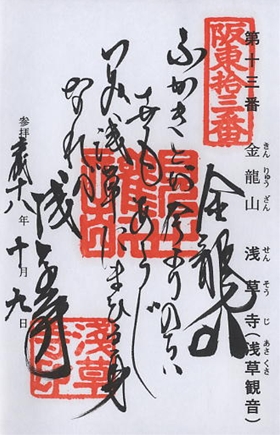 阪東拾三番
第十三番 金龍山 浅草寺(浅草観音)
きんりゅうざん せんそうじ あさくさ
金龍山
ふかきとが今よりのちは
よもあらじ
つみ浅草にまいる身
なれば
浅草寺
参拝 平成十八年十月九日
浅草寺印